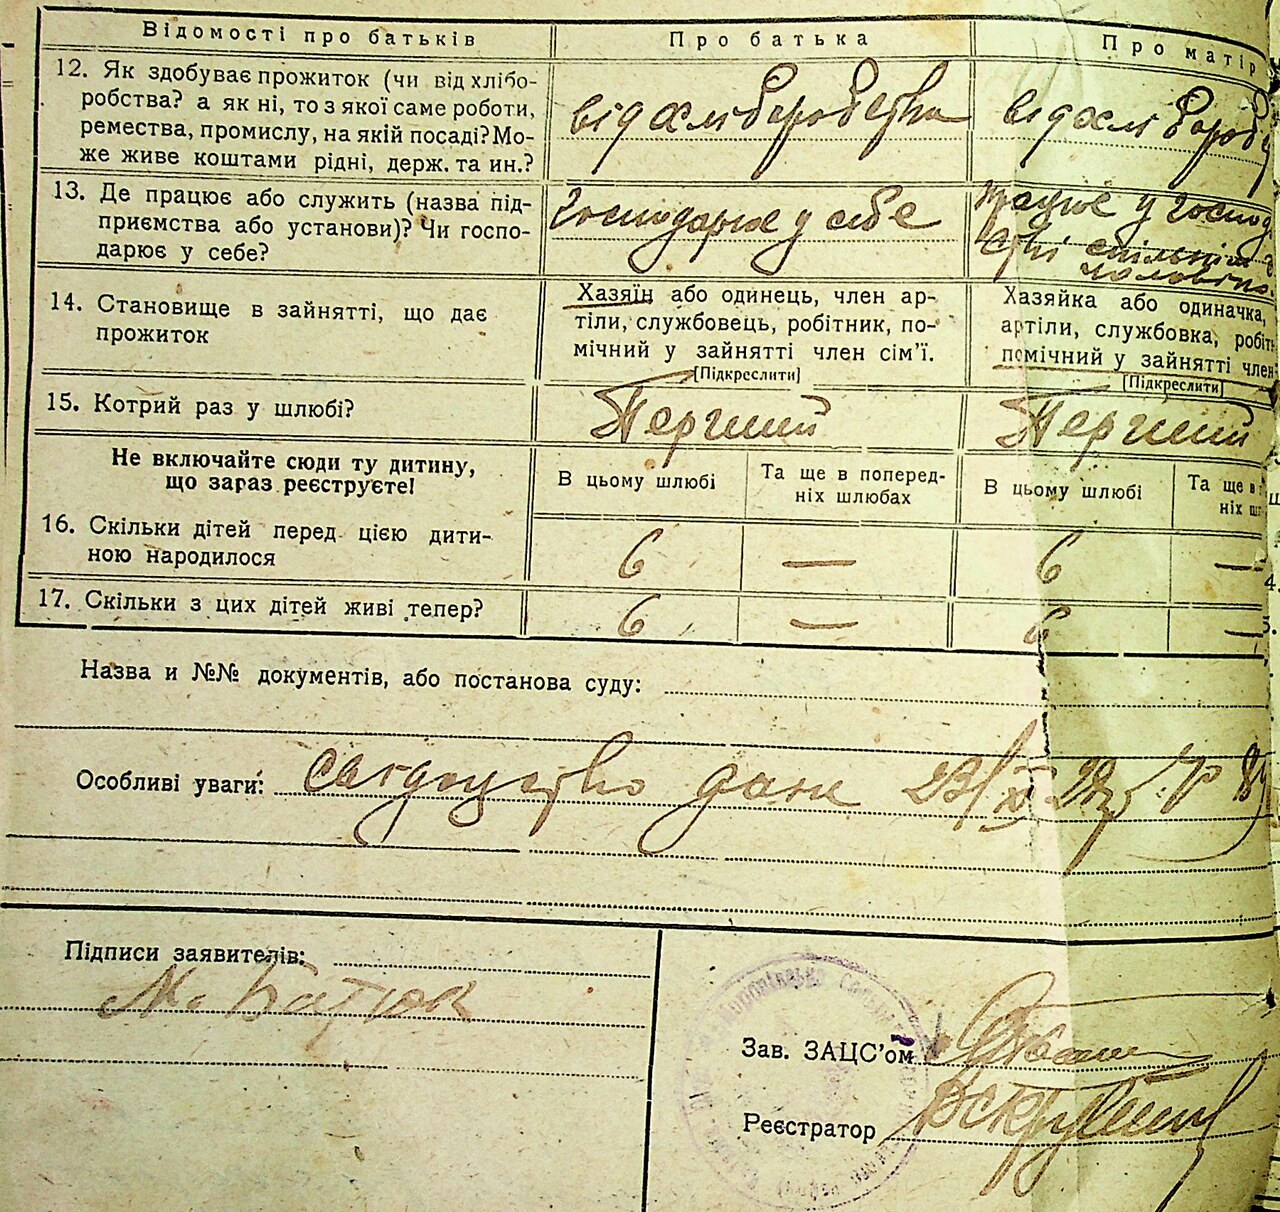 Відомості про батьків
Про батька
Про матір
12. Як здобуває прожиток (чи від хлібо-
робства? а як ні, то з якої саме роботи,
ремества, промислу, на якій посаді? Мо-
же живе коштами рідні, держ. та ин.?
від хліборобства
від хлібороб
13. Де працює або служить (назва під-
приємства або установи)? Чи госпо-
дарює у себе?
Господарює у себе
Працює у господ
стві спільнім з
чоловіко
14. Становище в зайнятті, що дає
прожиток
Хазяїн або одинець, член ар-
тіли, службовець, робітник, по-
мічний у зайнятті член сім'ї.
[Підкреслити]
Хазяйка або одиначка,
артіли, службовка, робіт
помічний у зайнятті член
[Підкреслити]
15. Котрий раз у шлюбі?
Перший
Перший
Не включайте сюди ту дитину,
що зараз реєструєте!
В цьому шлюбі
Та ще в поперед-
ніх шлюбах
В цьому шлюбі
Та ще в
ніх ш
16. Скільки дітей перед цією дити-
ною народилося
6 — 6 —
17. Скільки з цих дітей живі тепер?
6 — 6 —
Назва и №№ документів, або постанова суду:
Особливі уваги: свідоцтво дане 23/XI
Підписи заявителів:
М. Батюк
Зав. ЗАЦС'ом
Реєстратор